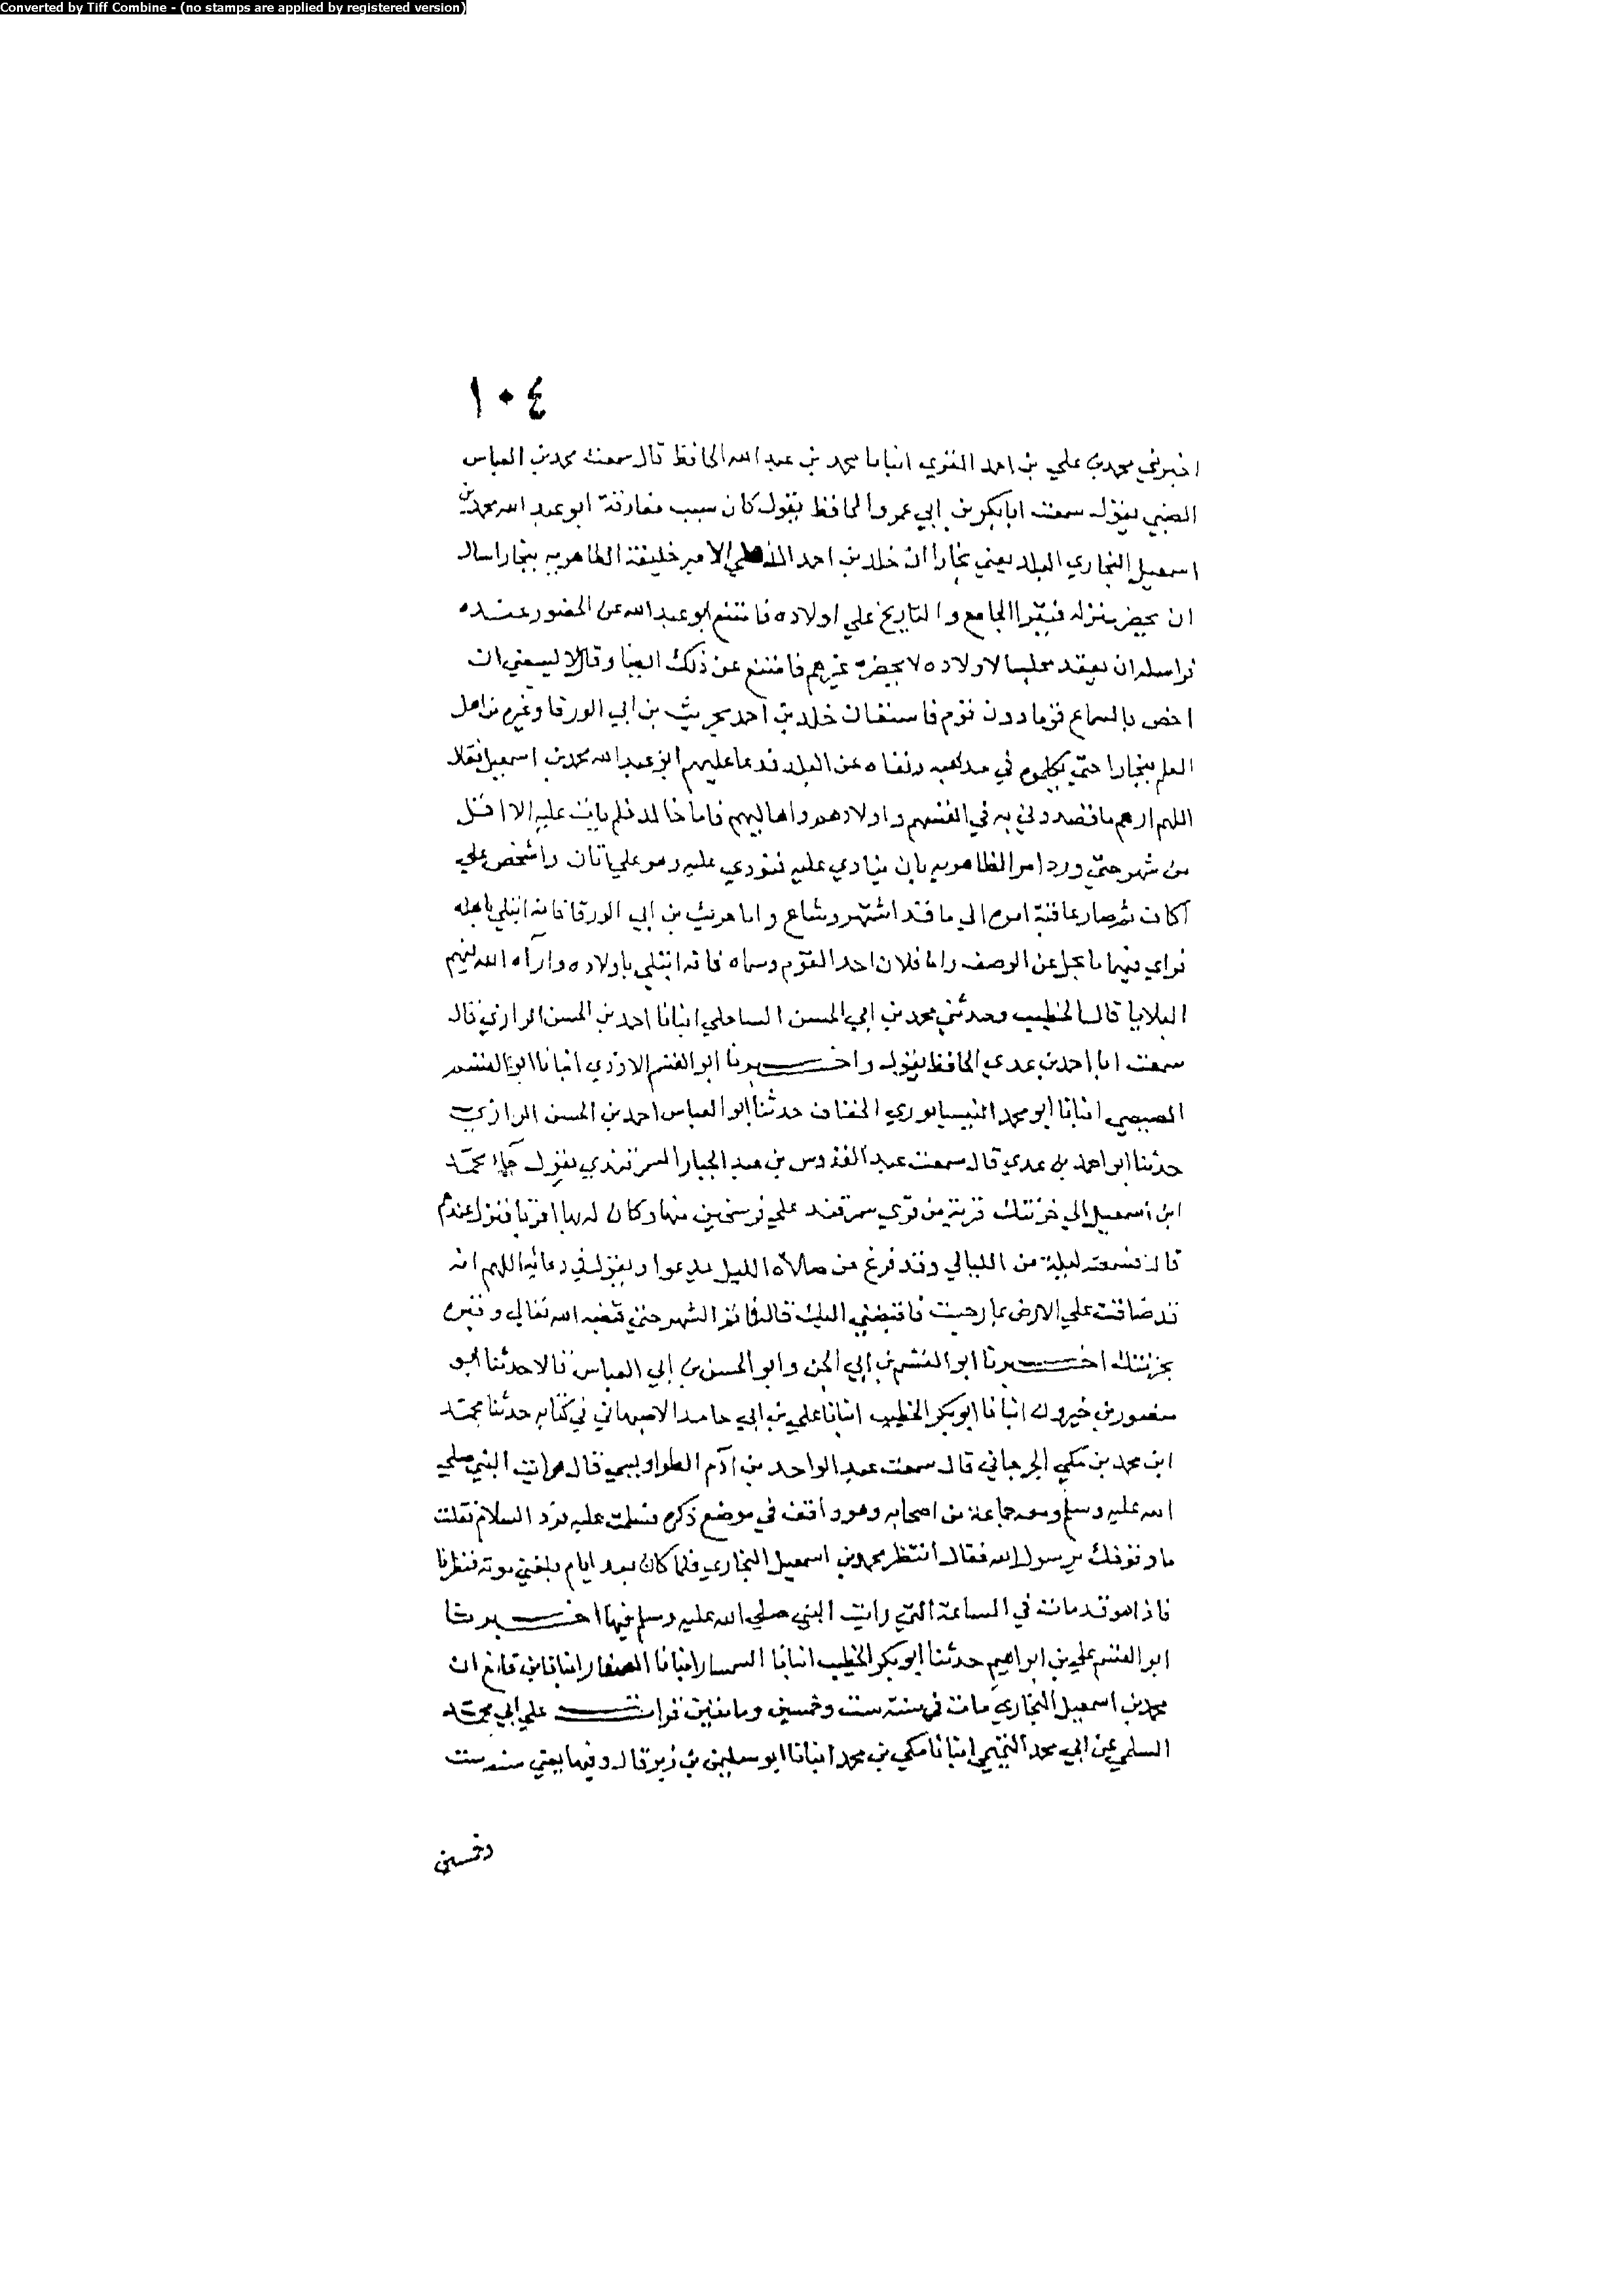 Converted by Tiff Combine - (no stamps are applied by registered version)
١٠٤
اخبرني محمد بن علي بن احمد المقري انبانا محمد بن عبد الله الحافظ قال سمعت محمد بن العباس
الضبي يقول سمعت ابا بكر بن ابي عمرو الحافظ يقول كان سبب مفارقة ابو عبد الله محمد بن
اسمعيل البخاري البلد يعني بخارا ان خلد بن احمد الذهلي الامير خليفة الطاهرية ببخارا سال
ان يحضر منزله فيقرا الجامع والتاريخ علي اولاده فامتنع ابو عبد الله عن الحضور عنده
فراسله ان يعقد مجلسا لاولاده لا يحضره غيرهم فامتنع عن ذلك ايضا وقال لا يسعني ان
اخص بالسماع قوما دون قوم فاستعان خلد بن احمد بحريث بن ابي الورقا وغيره من اهل
العلم ببخارا حتي تكلموا في مذهبه ونفاه عن البلد فدعا عليهم ابو عبد الله محمد بن اسمعيل فقال
اللهم ارهم ما قصدوني به في انفسهم واولادهم واهاليهم فاما خالد فلم يات عليه الا اقل
من شهر حتي ورد امر الظاهرية بان ينادي عليه فنودي عليه وهو علي اتان واشخص علي
اكاف ثم صار عاقبة امره الي ما قد اشتهر وشاع واما حريث بن ابي الورقا فانه ابتلي باهله
فراي فيها ما يجل عن الوصف واما فلان احد القوم وسماه فانه ابتلي باولاده وآراه الله فيهم
البلايا قال الخطيب وحدثني محمد بن ابي الحسن الساحلي انبانا احمد بن الحسن الرازي قال
سمعت ابا احمد بن عدي الحافظ يقول واخبرنا ابو القسم الازدي انبانا ابو القسم
المصيصي انبانا ابو محمد النيسابوري الخفاف حدثنا ابو العباس احمد بن الحسن الرازي
حدثنا ابو احمد بن عدي قال سمعت عبد القدوس بن عبد الجبار السمرقندي يقول جاء محمد
ابن اسمعيل الي خرتنك قرية من قري سمرقند علي فرسخين منها وكان له بها اقربا فنزل عندهم
قال فسمعته ليلة من الليالي وقد فرغ من صلاة الليل يدعوا ويقول في دعائه اللهم انه
قد ضاقت علي الارض بما رحبت فاقبضني اليك قال فما تم الشهر حتي قبضه الله تعالي وقبره
بخرتنك اخبرنا ابو القسم بن ابي الجن وابو الحسن بن ابي العباس قالا حدثنا ابو
منصور بن خيرون انبانا ابو بكر الخطيب انبانا علي بن ابي حامد الاصبهاني في كتابه حدثنا محمد
ابن محمد بن مكي الجرجاني قال سمعت عبد الواحد بن آدم الطواويسي قال رايت النبي صلي
الله عليه وسلم ومعه جماعة من اصحابه وهو واقف في موضع ذكره فسلمت عليه فرد السلام فقلت
ما وقوفك يرسول الله فقال انتظر محمد بن اسمعيل البخاري فلما كان بعد ايام بلغني موته فنظرنا
فاذا هو قد مات في الساعة التي رايت النبي صلي الله عليه وسلم فيها اخبرنا
ابو القسم علي بن ابراهيم حدثنا ابو بكر الخطيب انبانا السمسار انبانا الصفار انبانا بن قانع ان
محمد بن اسمعيل البخاري مات في سنة ست وخمسين ومايتين قرات علي ابي محمد
السلمي عن ابي محمد التميمي انبانا مكي بن محمد انبانا ابو سليمن بن زبر قال وفيها يعني سنه ست
وخمسين